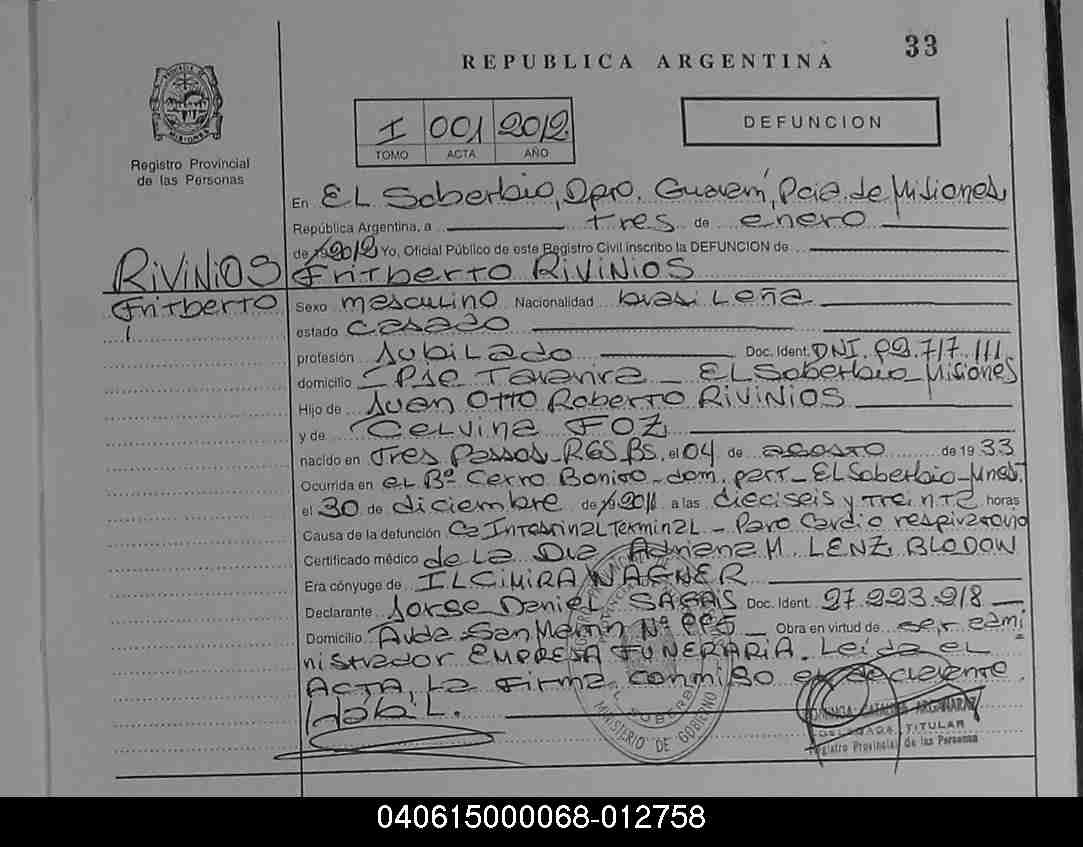 33
REPUBLICA ARGENTINA
PROVINCIA DE MISIONES
Registro Provincial
de las Personas
I 001 2012
TOMO ACTA AÑO
DEFUNCION
En EL Soberbio, Dpro. Guarani, Pcia. de Misiones,
República Argentina, a tres de enero
de 2012 Yo, Oficial Público de este Registro Civil inscribo la DEFUNCION de
RIVINIOS Fritberto RIVINIOS
Fritberto Sexo masculino Nacionalidad brasileña
estado casado
profesión Jubilado Doc. Ident. DNI. 92.717.111
domicilio Pje Taranira - EL Soberbio - Misiones
Hijo de Juan Otto Roberto RIVINIOS
y de Celvina FOZ
nacido en Tres Passos - RGS. BS. el 04 de agosto de 1933
Ocurrida en el Bº Cerro Bonito - dom. part - EL Soberbio - Mnes.
el 30 de diciembre de 2011 a las dieciseis y treinta horas
Causa de la defunción Ca Intestinal Terminal - Paro Cardio respiratorio
Certificado médico de La Dra Adriana M. LENZ BLODOW
Era cónyuge de ILCIMIRA WAGNER
Declarante Jorge Daniel Doc. Ident. 27.223.218
Domicilio Avda. San Martin Nº Obra en virtud de ser admi
nistrador EMPRESA FUNERARIA. Leida el
ACTA, La firma conmigo el declarante
Habil.
EL SOBERBIO
MINISTERIO DE GOBIERNO
CATALINA ARGAÑARAZ
DELEGADA TITULAR
Registro Provincial de las Personas
040615000068-012758